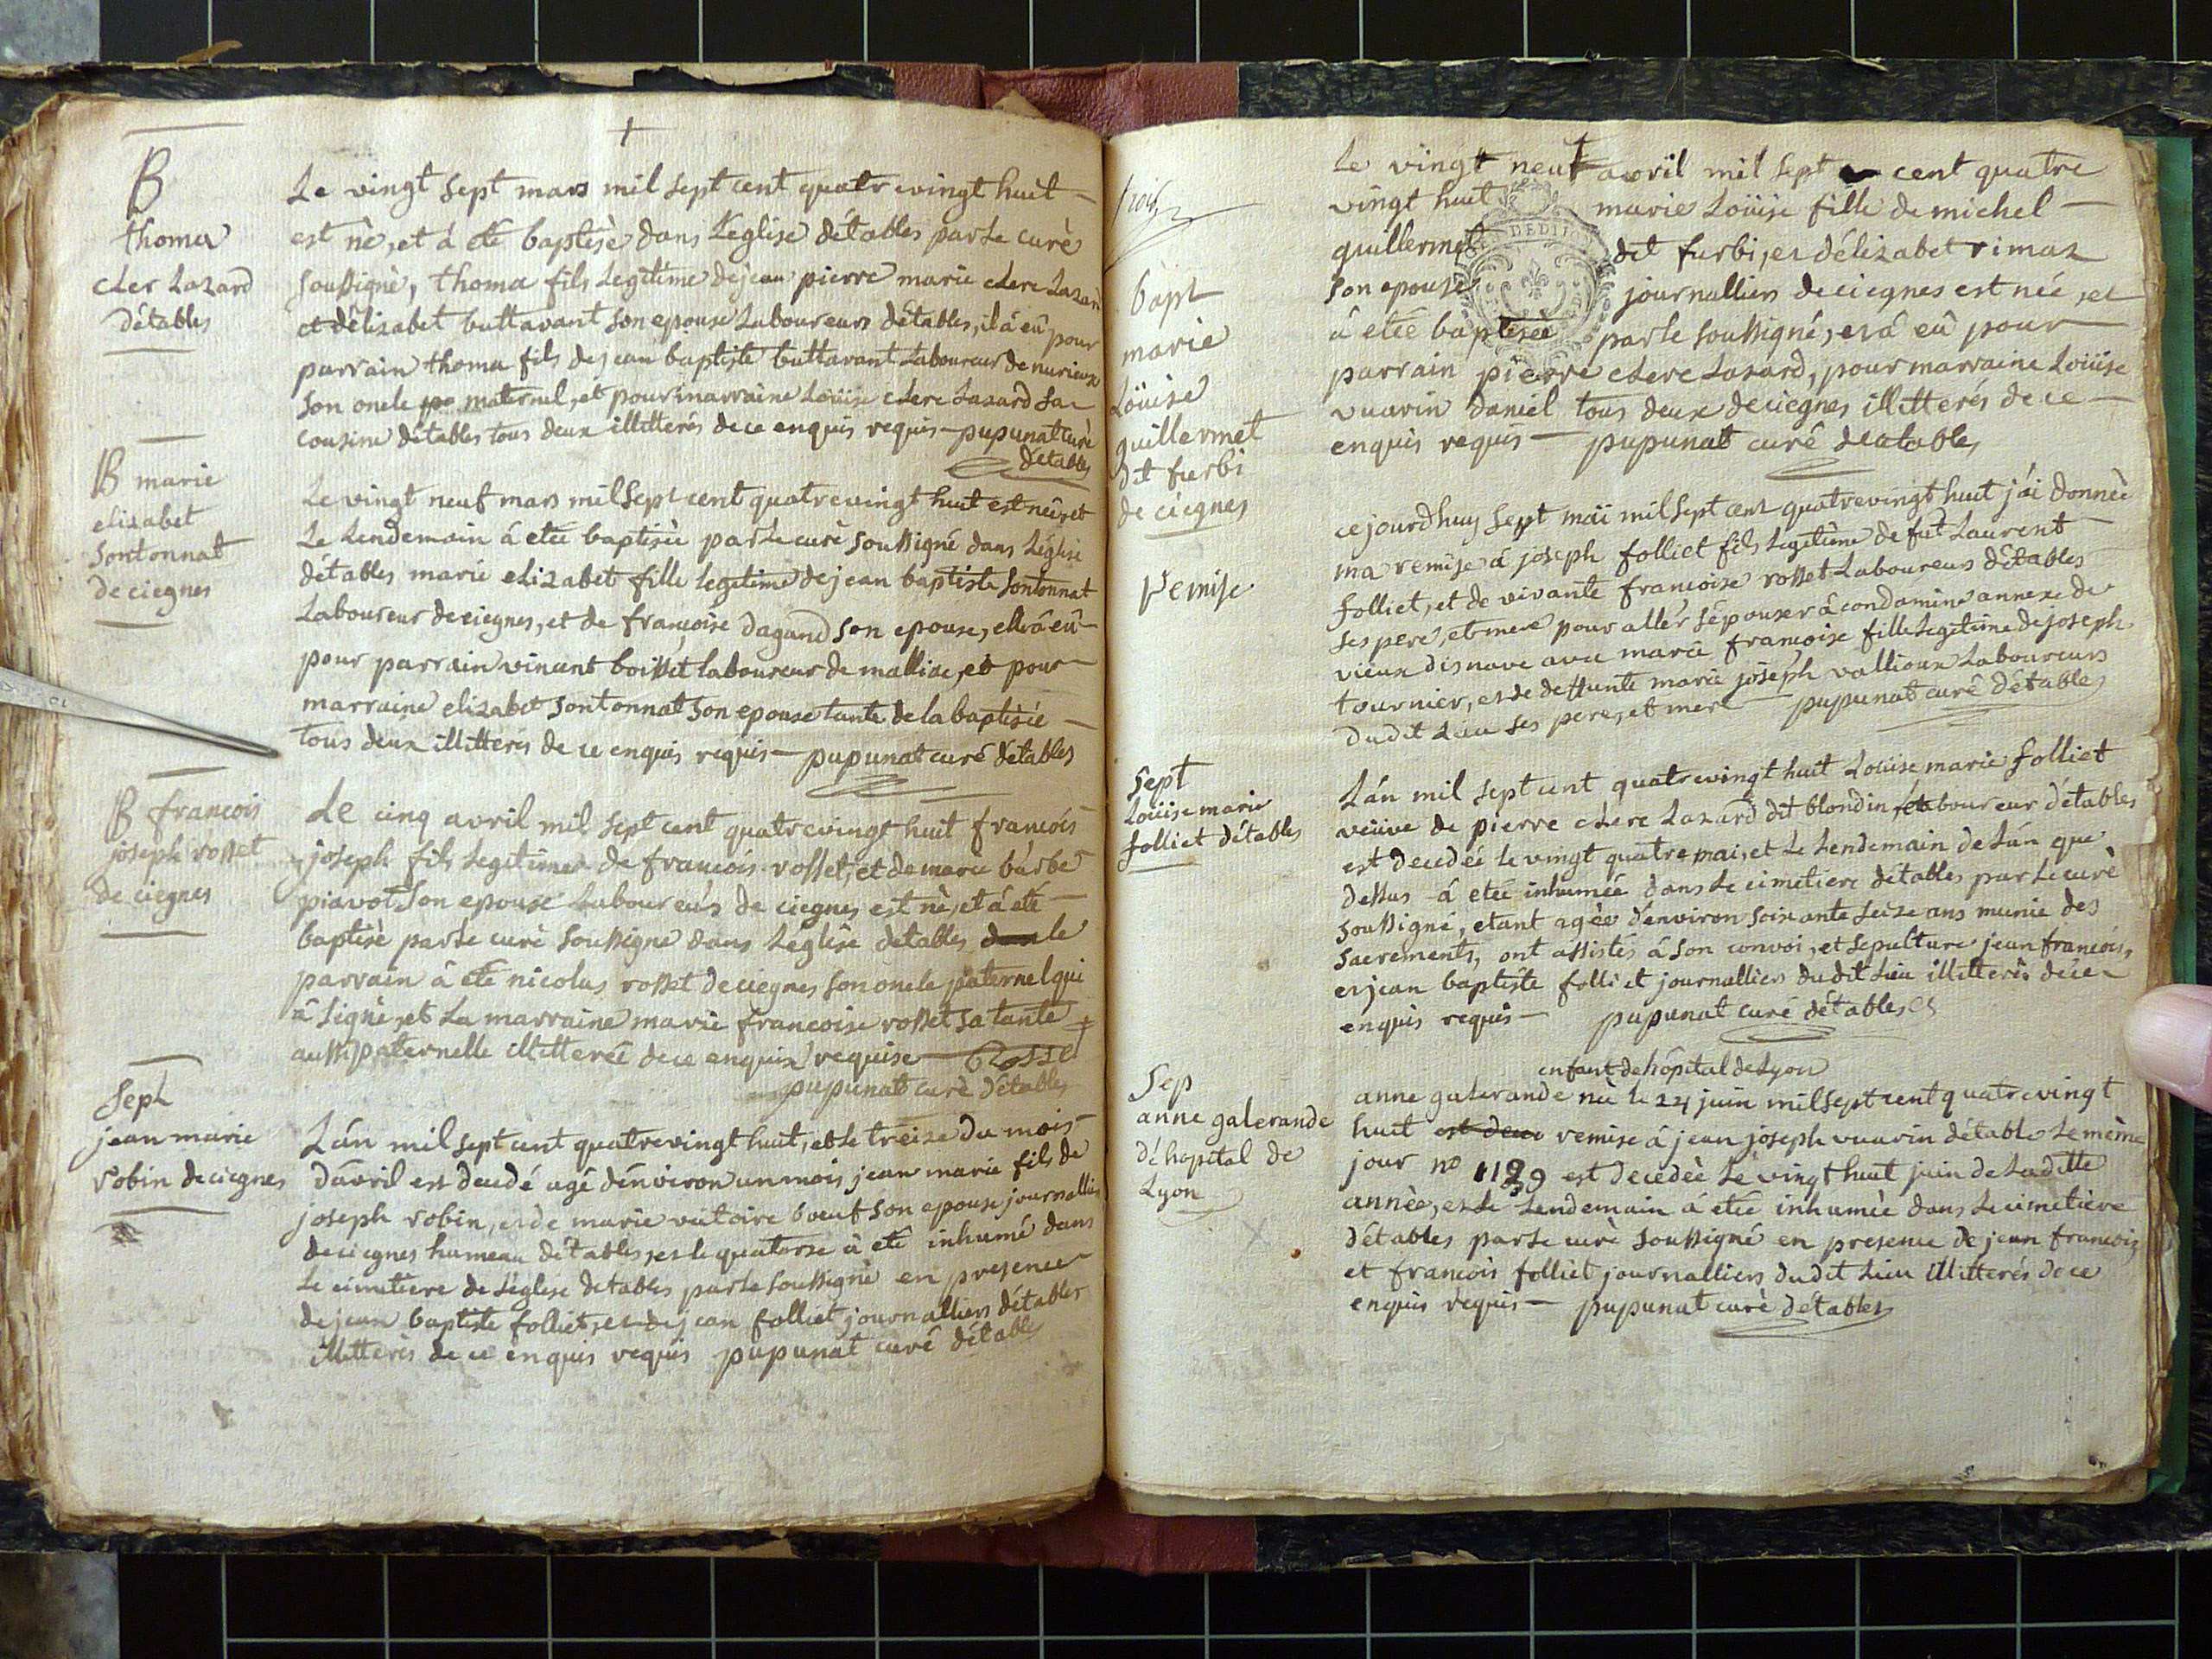 B
thoma
cler Lazard
détables
Le vingt sept mars mil sept cent quatrevingt huit
est nè, et á eté baptisè dans L'eglise détables par Le curè
soussigné, thoma fils Legitime de jean pierre marie clerc Lazard
et délizabet buttavant son epouse Laboureurs détables, il á eû pour
parrain thoma fils de jean baptiste buttavant Laboureur de nurieux
son oncle maternel, et pour marraine Loüise clerc Lazard sa
cousine détables tous deux illitterés de ce enquis requis - pupunat curè
détables
B marie
elizabet
sontonnat
de ciegnes
Le vingt neuf mars mil sept cent quatrevingt huit est neè, et
Le Lendemain á eteé baptisèe par Le curè soussigné dans L'églisè
détables marie elizabet fille legetime de jean baptiste sontonnat
Laboureur de ciegnes, et de françoise dagand son epouse, elle á eû
pour parrain vincent boisset laboureur de malliac, et pour
marraine elizabet sontonnat son epouse tante de la baptisèe
tous deux illitterés de ce enquis requis - pupunat curé détables
B francois
joseph rosset
de ciegnes
Le cinq avril mil sept cent quatrevingt huit francois
joseph fils Legitime de francois rosset, et de marie barbe
piavot son epouse Laboureurs de ciegnes est nè, et á eté
baptisè par Le curè soussigné dans Leglise détables le
parrain á eté nicolas rosset de ciegnes son oncle paternel qui
á signé, et La marraine marie francoise rosset sa tante
aussi paternelle illitterée de ce enquise requise - Rosset
pupunat curè détables
Seph
jean marie
robin de ciegnes
L'án mil sept cent quatrevingt huit, et le treize du mois
d'avril est decedé agé d'énviron un mois jean marie fils de
joseph robin, et de marie victoire boeuf son epouse journalliers
de ciegnes hameau détables, et le quatorze á eté inhumé dans
Le cimetiere de L'église détables par Le soussigné en presence
de jean baptiste folliet, et de jean folliet journalliers détables
illitterés de ce enquis requis pupunat curé détables
trois
bapt
marie
Loüise
guillermet
dit furbi
de ciegnes
Le vingt neuf avril mil sept cent quatre
vingt huit marie Loüise fille de michel
guillermet dit furbi, et délizabet rimaz
son epouse journalliers de ciegnes est née, et
á etée baptisée par le soussigné, et á eû pour
parrain pierre clerc Lazard, pour marraine Loüise
vuarin daniel tous deux de ciegnes illitterés de ce
enquis requis - pupunat curé détables
remise
ce jourdhuy sept maï mil sept cent quatrevingt huit j'ái donnée
ma remise á joseph folliet fils Legitime de fut Laurent
folliet, et de vivante francoise rosset Laboureurs détables
ses pere, et mere pour aller sépouser á condamine annexe de
vieux disnave avec marie francoise fille Legitime de joseph
tournier, et de deffunte marie joseph vallioux Laboureurs
dudit Lieu ses pere, et mere - pupunat curé détables
Sept
Loüise marie
folliet détables
L'án mil sept cent quatrevingt huit Louise marie folliet
veuve de pierre clerc Lazard dit blondin, Laboureur détables
est decedée le vingt quatre mai, et Le Lendemain de L'án que
dessus á eteé inhumée dans Le cimetiere détables par Le curè
soussigné, etant agée d'environ soixante seize ans munie des
sacrements, ont assistés á son convoi, et sepulture jean francois,
et jean baptiste folliet journalliers du dit Lieu illitterés de ce
enquis requis - pupunat curé détables
Sep
anne galerande
dé hopital de
Lyon
enfant de hôpital de Lyon
anne galerande neè le 24 juin mil sept cent quatrevingt
huit est dece remise á jean joseph vuarin détables Le mème
jour no 1129 est decedèe Le vingt huit juin de Laditte
annèe, et Le Lendemain á eteé inhumèe dans Le cimetiere
détables par Le curè soussigné en presence de jean francois
et francois folliet journalliers du dit Lieu illitterés de ce
enquis requis - pupunat curè détables